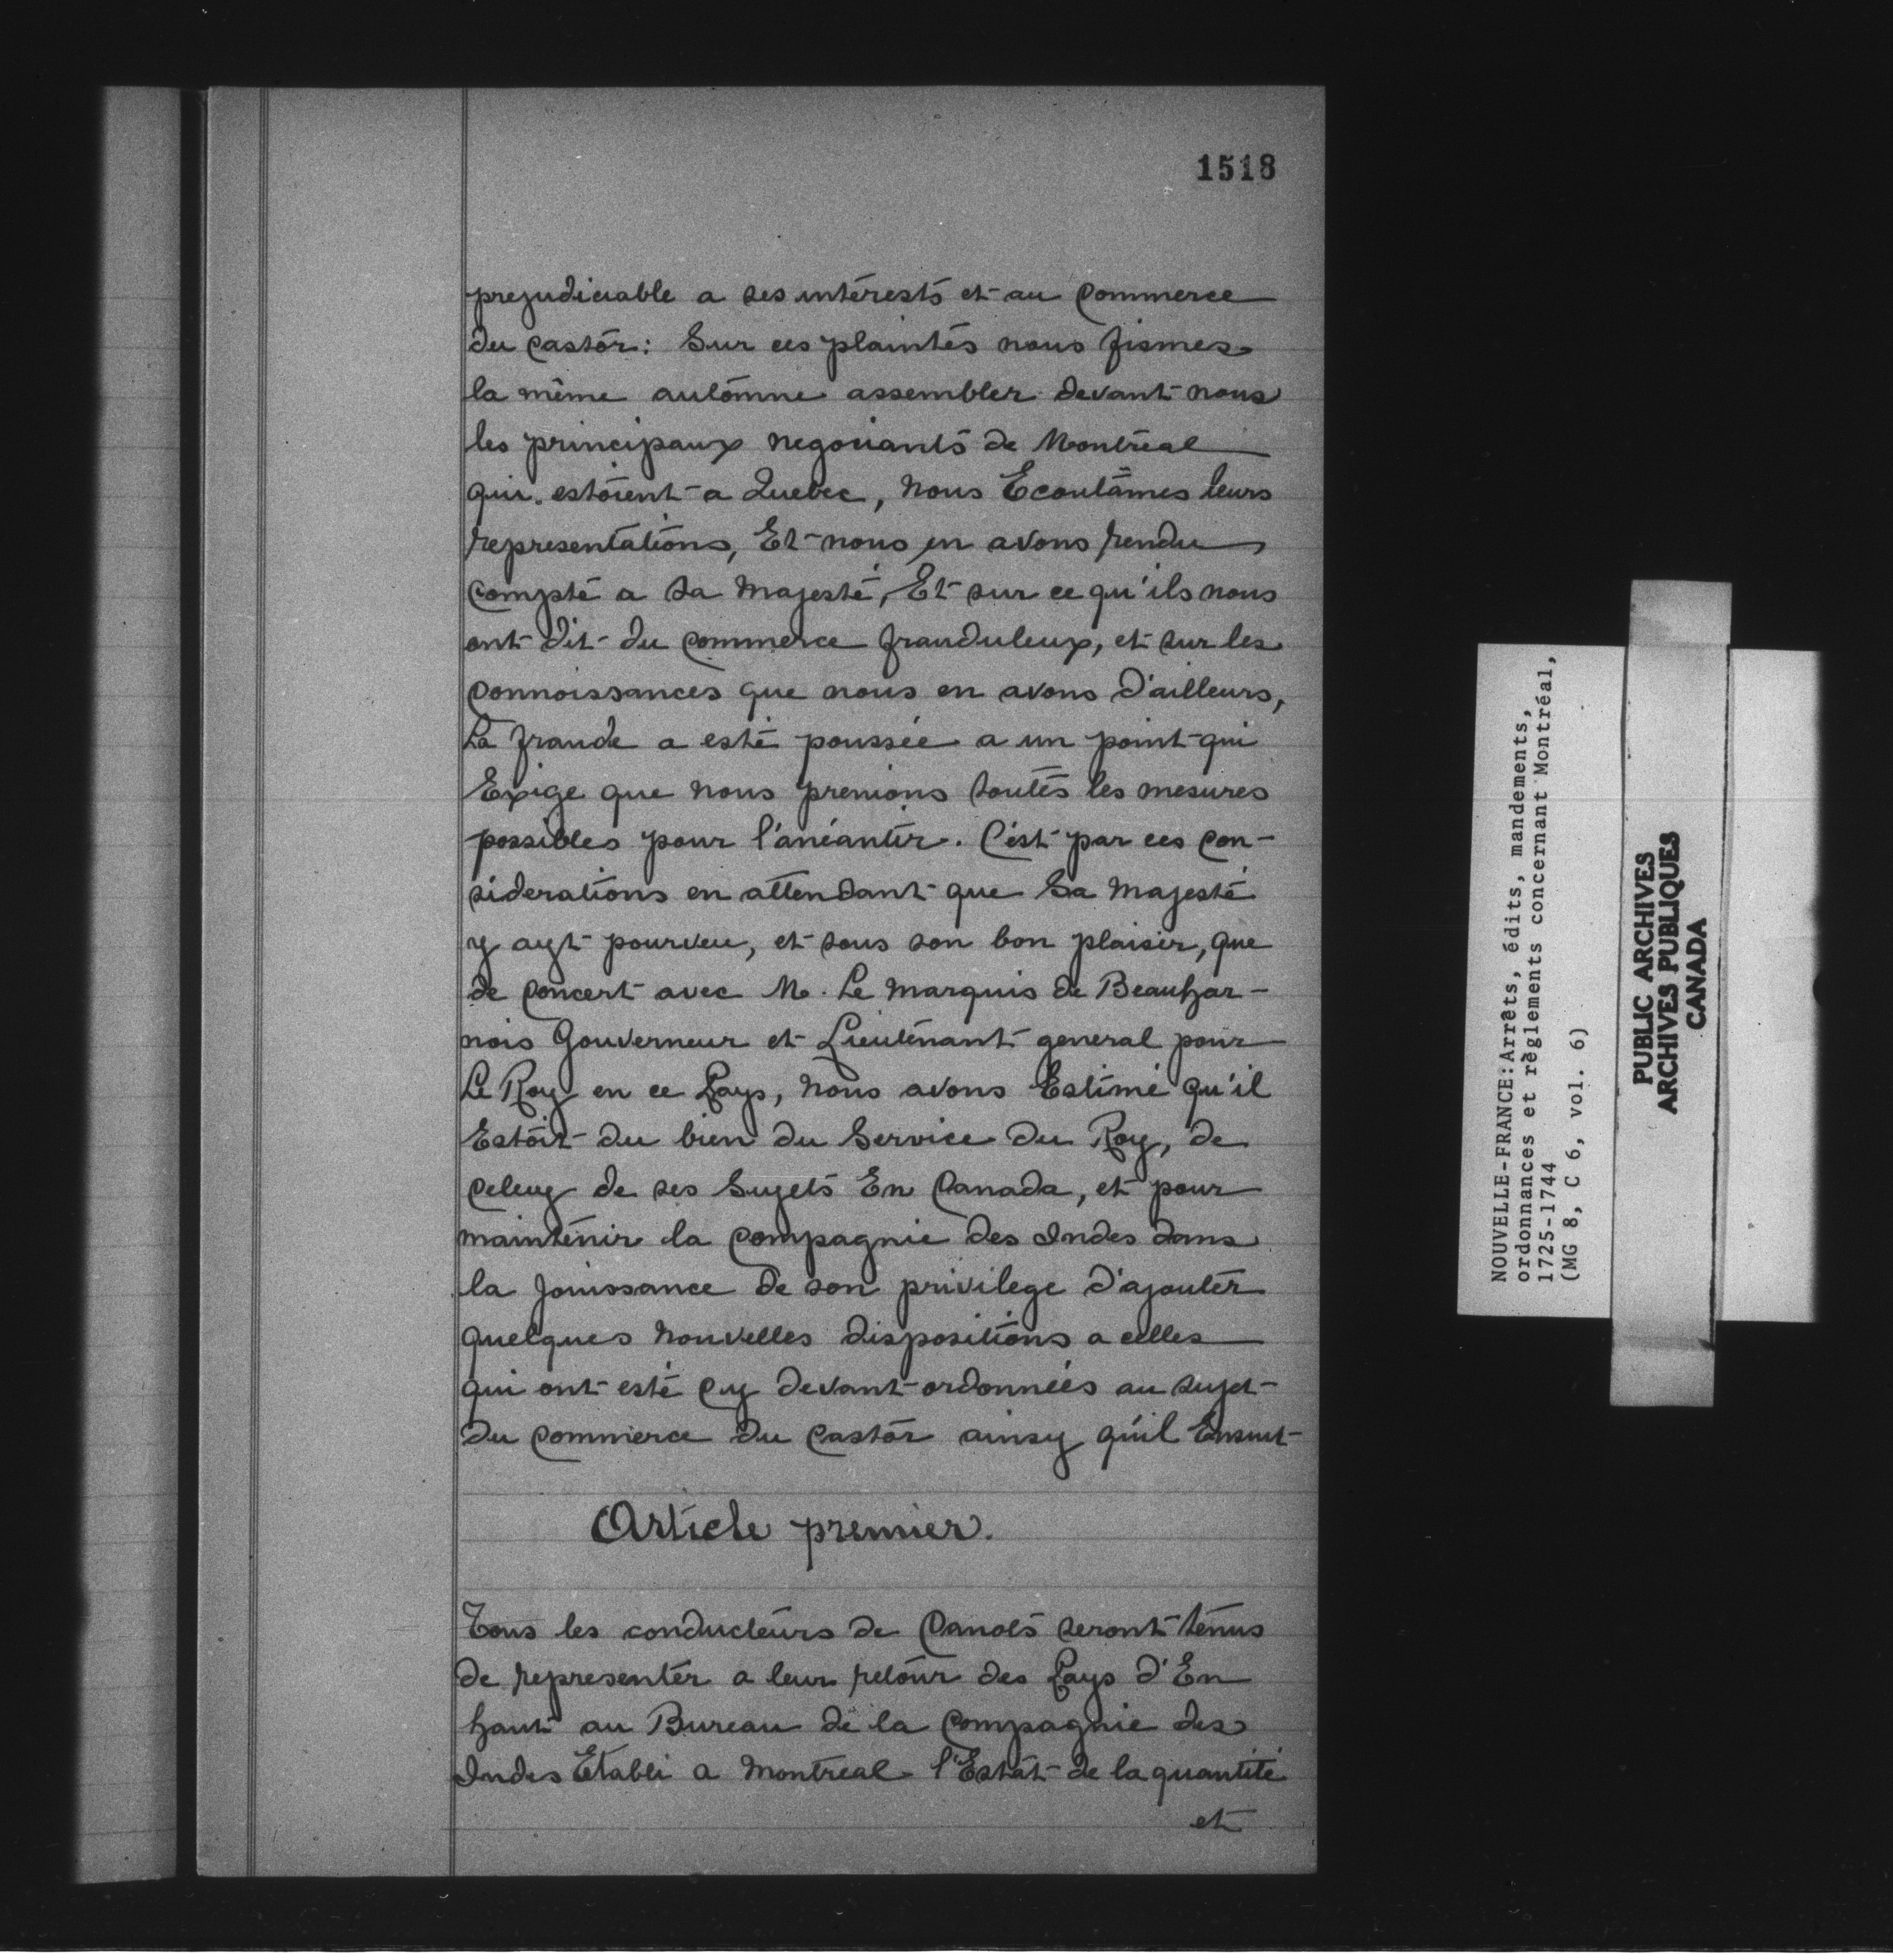 1518
prejudiciable a ses intérests et au Commerce
du Castor : Sur ces plaintes nous fismes
la même automne assembler devant nous
les principaux negociants de Montreal
qui estoient a Quebec, nous Ecoutâmes leurs
representations, Et nous en avons rendu
Compte a sa Majesté, Et sur ce qu'ils nous
ont dit du Commerce frauduleux, et sur les
Connoissances que nous en avons d'ailleurs,
La fraude a esté poussée a un point qui
Exige que nous prenions toutes les mesures
possibles pour l'anéantir. C'est par ces Con-
siderations en attendant que Sa Majesté
y ayt pourveu, et sous son bon plaisir, que
de Concert avec M. Le Marquis de Beauhar-
nois Gouverneur et Lieutenant general pour
Le Roy en ce Pays, nous avons Estimé qu'il
Estoit du bien du Service du Roy, de
Celuy de ses Sujets En Canada, et pour
maintenir la Compagnie des Indes dans
la Jouissance de son privilege d'ajouter
quelques nouvelles dispositions a celles
qui ont esté Cy devant ordonnées au sujet
du Commerce du Castor ainsy qu'il Ensuit
Article premier.
Tous les conducteurs de Canots seront tenus
de representer a leur retour des Pays d'En
haut au Bureau de la Compagnie des
Indes Etabli a Montreal l'Estat de la quantité
et
NOUVELLE-FRANCE: Arrêts, édits, mandements,
ordonnances et règlements concernant Montréal,
1725-1744
(MG 8, C 6, vol. 6)
PUBLIC ARCHIVES
ARCHIVES PUBLIQUES
CANADA